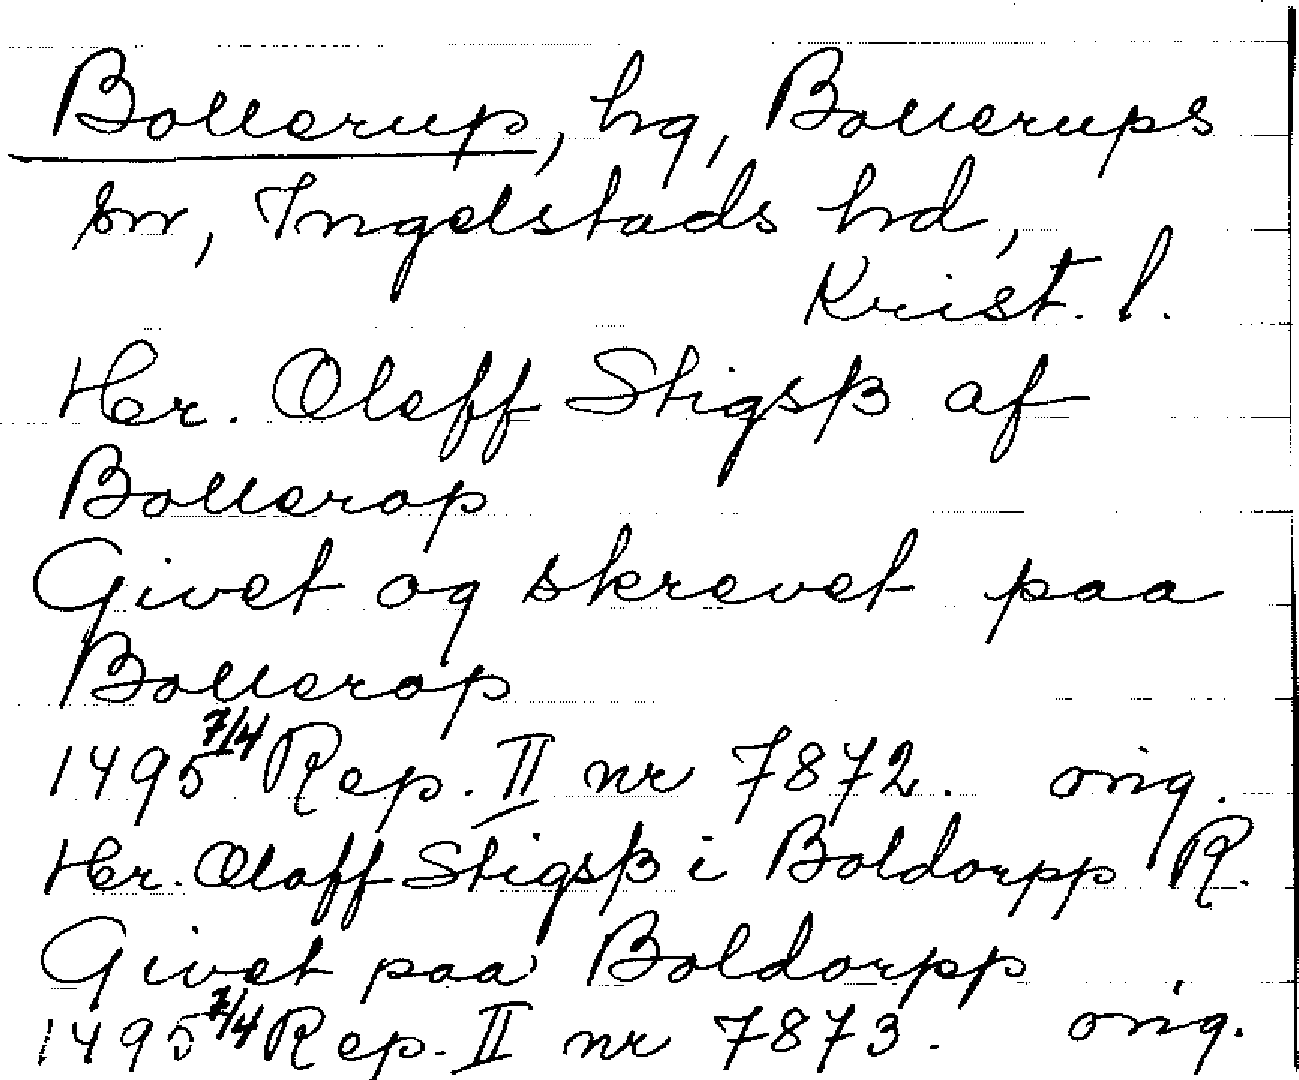 Bollerup, hg, Bollerups
sn, Ingelstads hd,
Krist. l.
Her. Oleff Stigsß af
Bollerop
Givet og skrevet paa
Bollerop
1495 7/4 Rep. II nr 7872. orig.
Her. Olaff Stigsß i Boldorpp R.
Givet paa Boldorpp
1495 7/4 Rep. II nr 7873. orig.